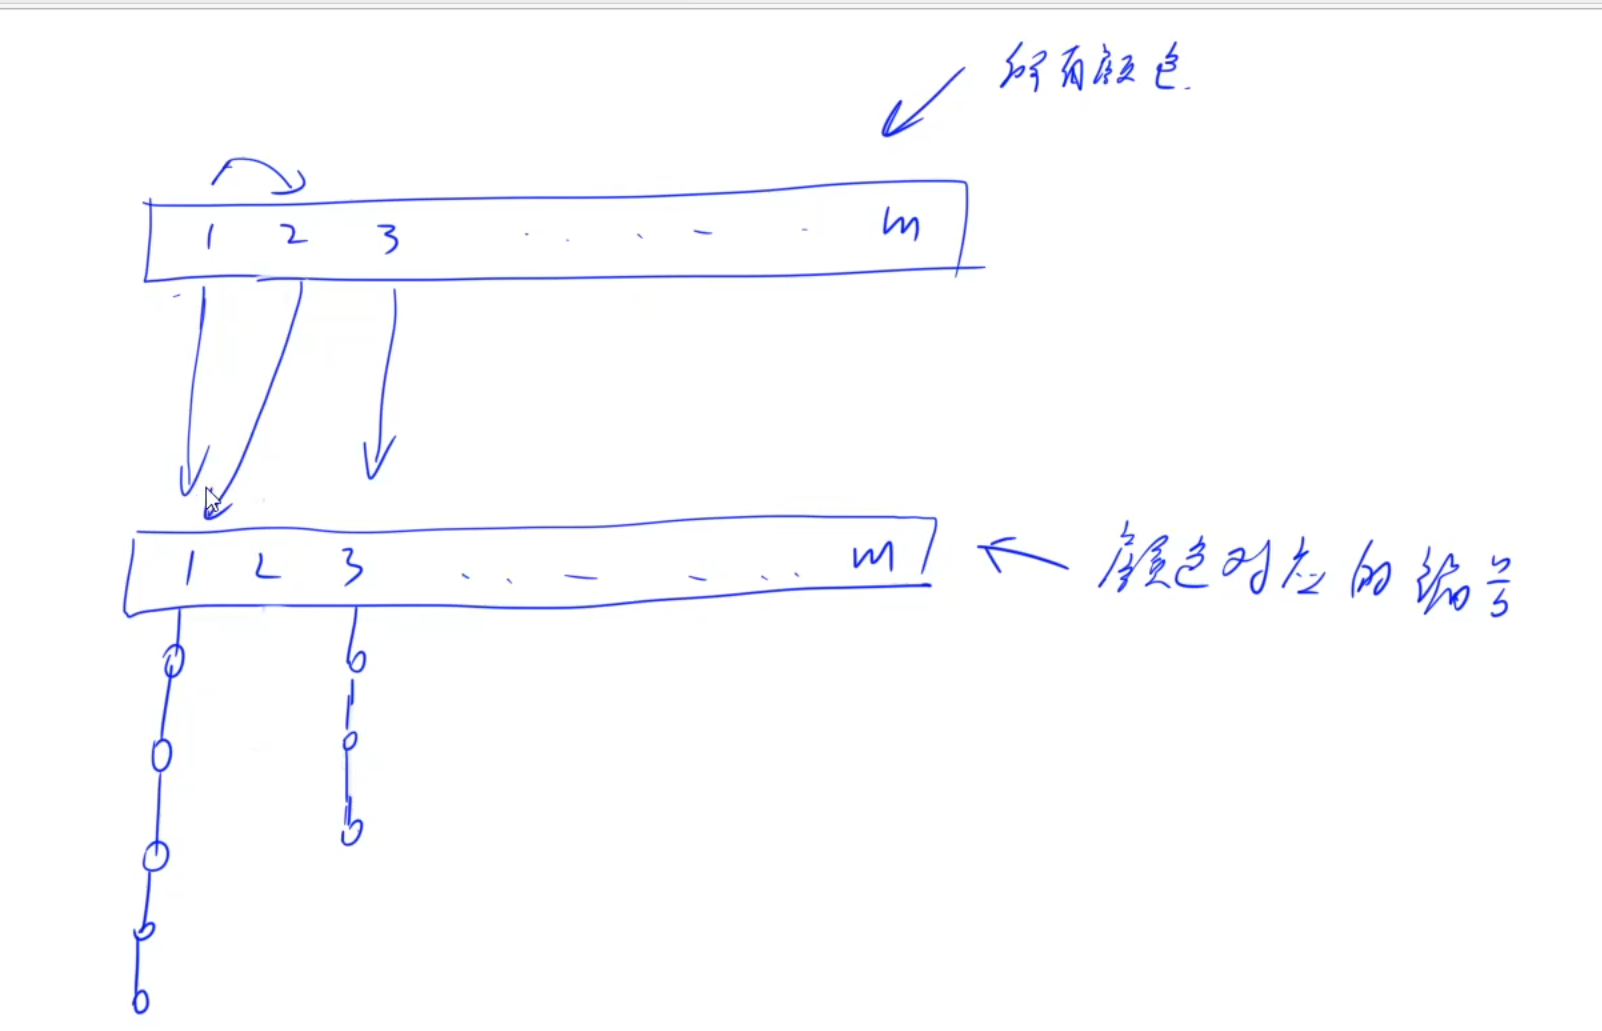 所有颜色.
1 2 3 . . . - . m
1 2 3 . . - - . . m
颜色对应的编号